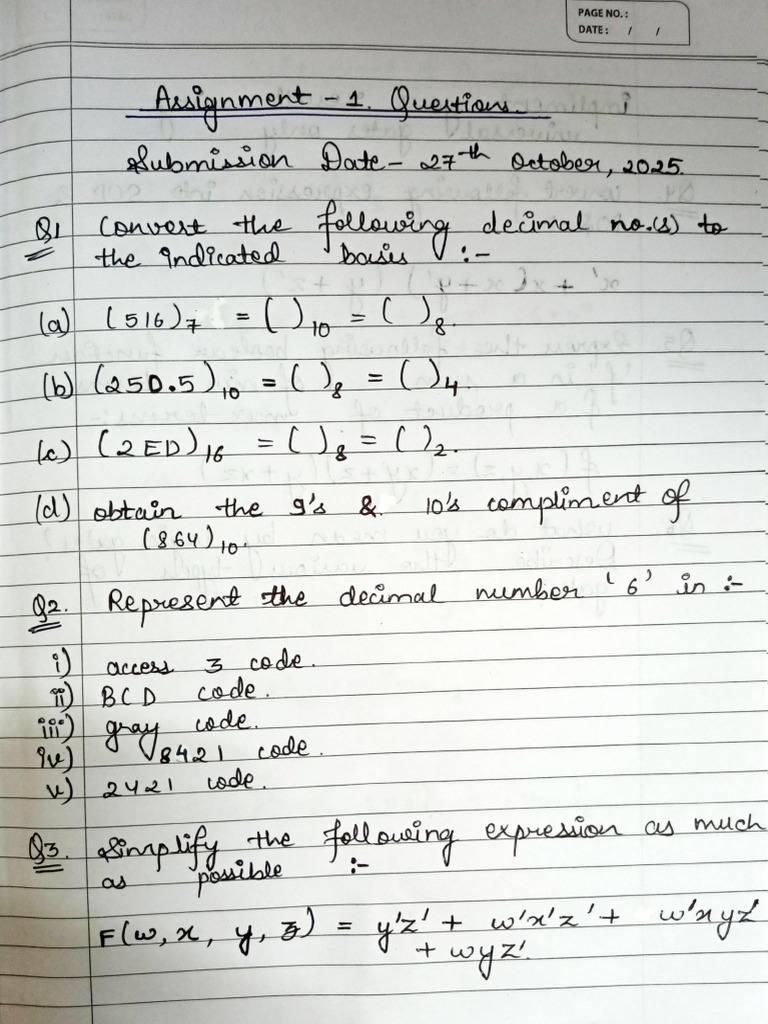 PAGE NO.:
DATE: / /
Assignment - 1. Questions.
Submission Date - 27th October, 2025.
Q1 Convert the following decimal no.(s) to
the indicated basis :-
(a) (516)7 = ( )10 = ( )8.
(b) (250.5)10 = ( )8 = ( )4
(c) (2ED)16 = ( )8 = ( )2.
(d) obtain the 9's & 10's compliment of
(864)10.
Q2. Represent the decimal number '6' in :-
i) access 3 code.
ii) BCD code.
iii) gray code.
iv) 8421 code.
v) 2421 code.
Q3. Simplify the following expression as much
as possible :-
F(w, x, y, z) = y'z' + w'x'z' + w'xyz'
+ wyz'.